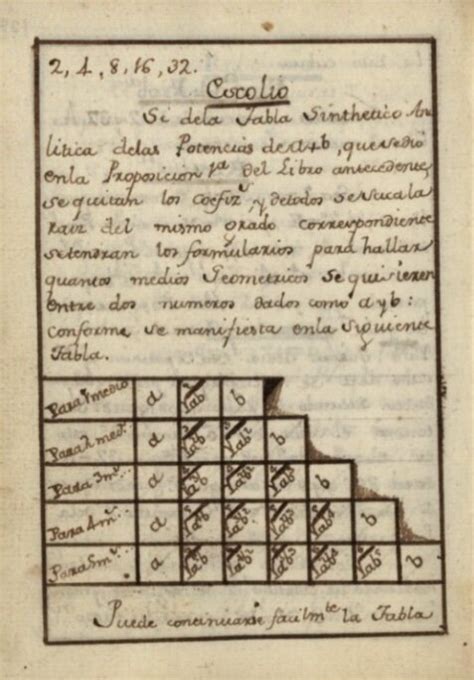 2, 4, 8, 16, 32.
Corolio
Si dela Tabla Sinthetico An
litica delas Potencias de a+b, que se dió
enla Proposicion 1.ª del Libro antecedente,
se quitan los Coefiz.s, y detodos se saca la
raiz del mismo grado correspondiente
se tendran los formularios para hallar
quantos medios Geometricos se quisieren
entre dos numeros dados como a y b:
conforme se manifiesta enla siguiente
Tabla.
Para 1 medio a b
Para 2 med.s a b
Para 3 m.s a b
Para 4 m.s a b
Para 5 m.s a b
Puede continuarse facilm.te la Tabla